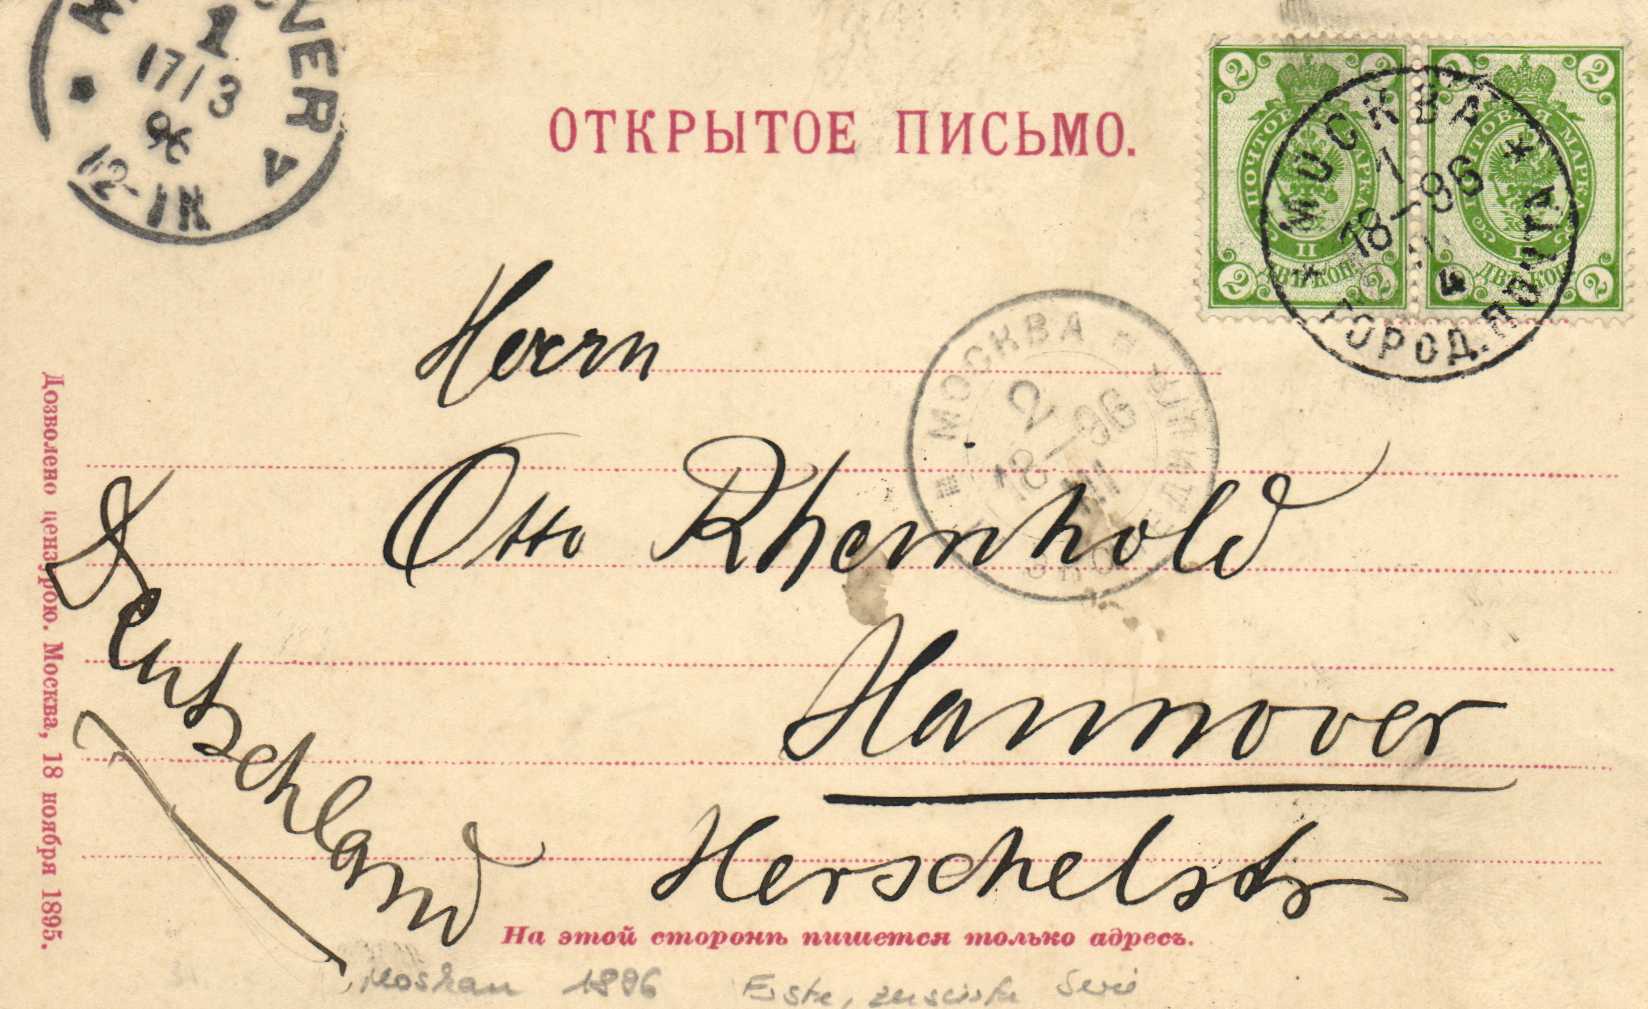 HANNOVER
1
17/3
96
12-1N
ОТКРЫТОЕ ПИСЬМО.
2 2
ПОЧТОВАЯ МАРКА
ДВѢ КОП.
2 2
2 2
ПОЧТОВАЯ МАРКА
ДВѢ КОП.
2 2
МОСКВА
1
18-96
4
ГОРОД. ПОЧТА
МОСКВА
2
18-96
III
Herrn
Otto Rheinhold
Hannover
Herschelstr
Deutschland
Дозволено цензурою. Москва, 18 ноября 1895.
На этой сторонѣ пишется только адресъ.
Moskau 1896 Erste, Serie